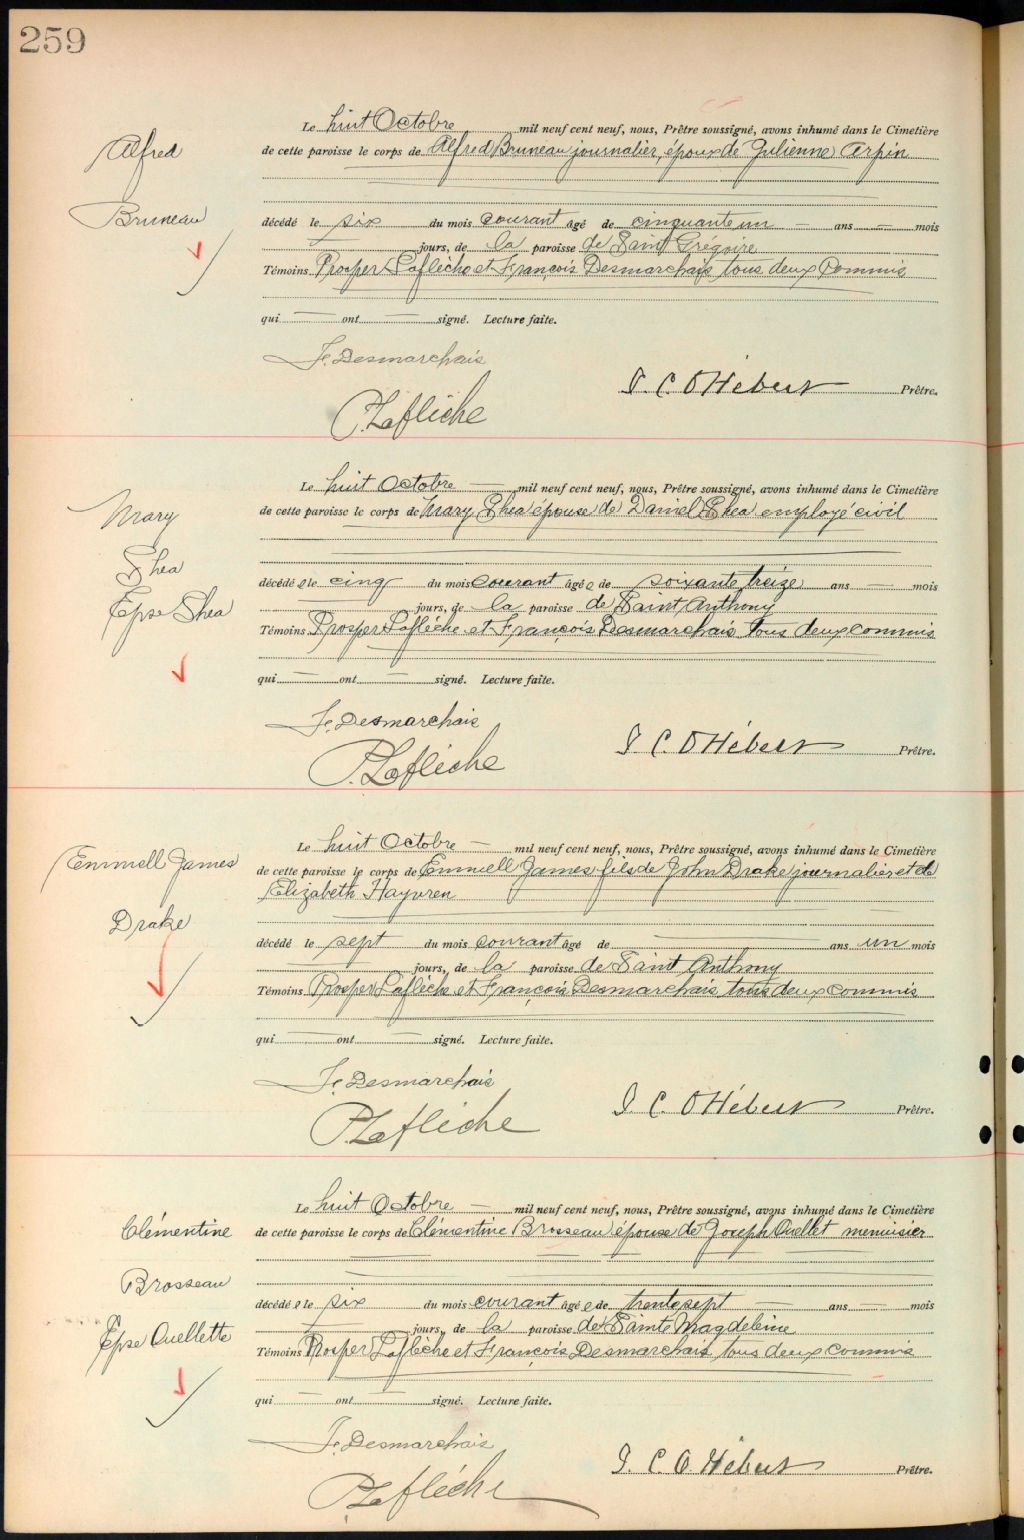 259
Alfred
Bruneau
Le huit Octobre mil neuf cent neuf, nous, Prêtre soussigné, avons inhumé dans le Cimetière
de cette paroisse le corps de Alfred Bruneau journalier, époux de Julienne Arpin
décédé le six du mois courant âgé de cinquante un — ans — mois
— jours, de la paroisse de Saint Grégoire
Témoins Prosper Laflèche et François Desmarchais tous deux Commis
qui — ont — signé. Lecture faite.
F. Desmarchais
J. C. O Hébert Prêtre.
P. Laflèche
Mary
Shea
Epse Shea
Le huit Octobre — mil neuf cent neuf, nous, Prêtre soussigné, avons inhumé dans le Cimetière
de cette paroisse le corps de Mary Shea épouse de Daniel Shea employé civil
décédé e le cinq du mois courant âgé e de soixante treize ans — mois
— jours, de la paroisse de Saint Anthony
Témoins Prosper Laflèche et François Desmarchais tous deux commis
qui — ont — signé. Lecture faite.
F. Desmarchais
J. C. O Hébert Prêtre.
P. Laflèche
Emmell James
Drake
Le huit Octobre — mil neuf cent neuf, nous, Prêtre soussigné, avons inhumé dans le Cimetière
de cette paroisse le corps de Emmell James fils de John Drake journalier et de
Elizabeth Hayvren
décédé le sept du mois courant âgé de — ans un mois
— jours, de la paroisse de Saint Anthony
Témoins Prosper Laflèche et François Desmarchais tous deux commis
qui — ont — signé. Lecture faite.
F. Desmarchais
J. C. O Hébert Prêtre.
P. Laflèche
Clémentine
Brosseau
Epse Ouellette
Le huit Octobre — mil neuf cent neuf, nous, Prêtre soussigné, avons inhumé dans le Cimetière
de cette paroisse le corps de Clémentine Brosseau épouse de Joseph Ouellet menuisier
décédé e le six du mois courant âgé e de trente sept — ans — mois
— jours, de la paroisse de Sainte Magdeleine
Témoins Prosper Laflèche et François Desmarchais tous deux commis
qui — ont — signé. Lecture faite.
F. Desmarchais
J. C. O. Hébert Prêtre.
P. Laflèche